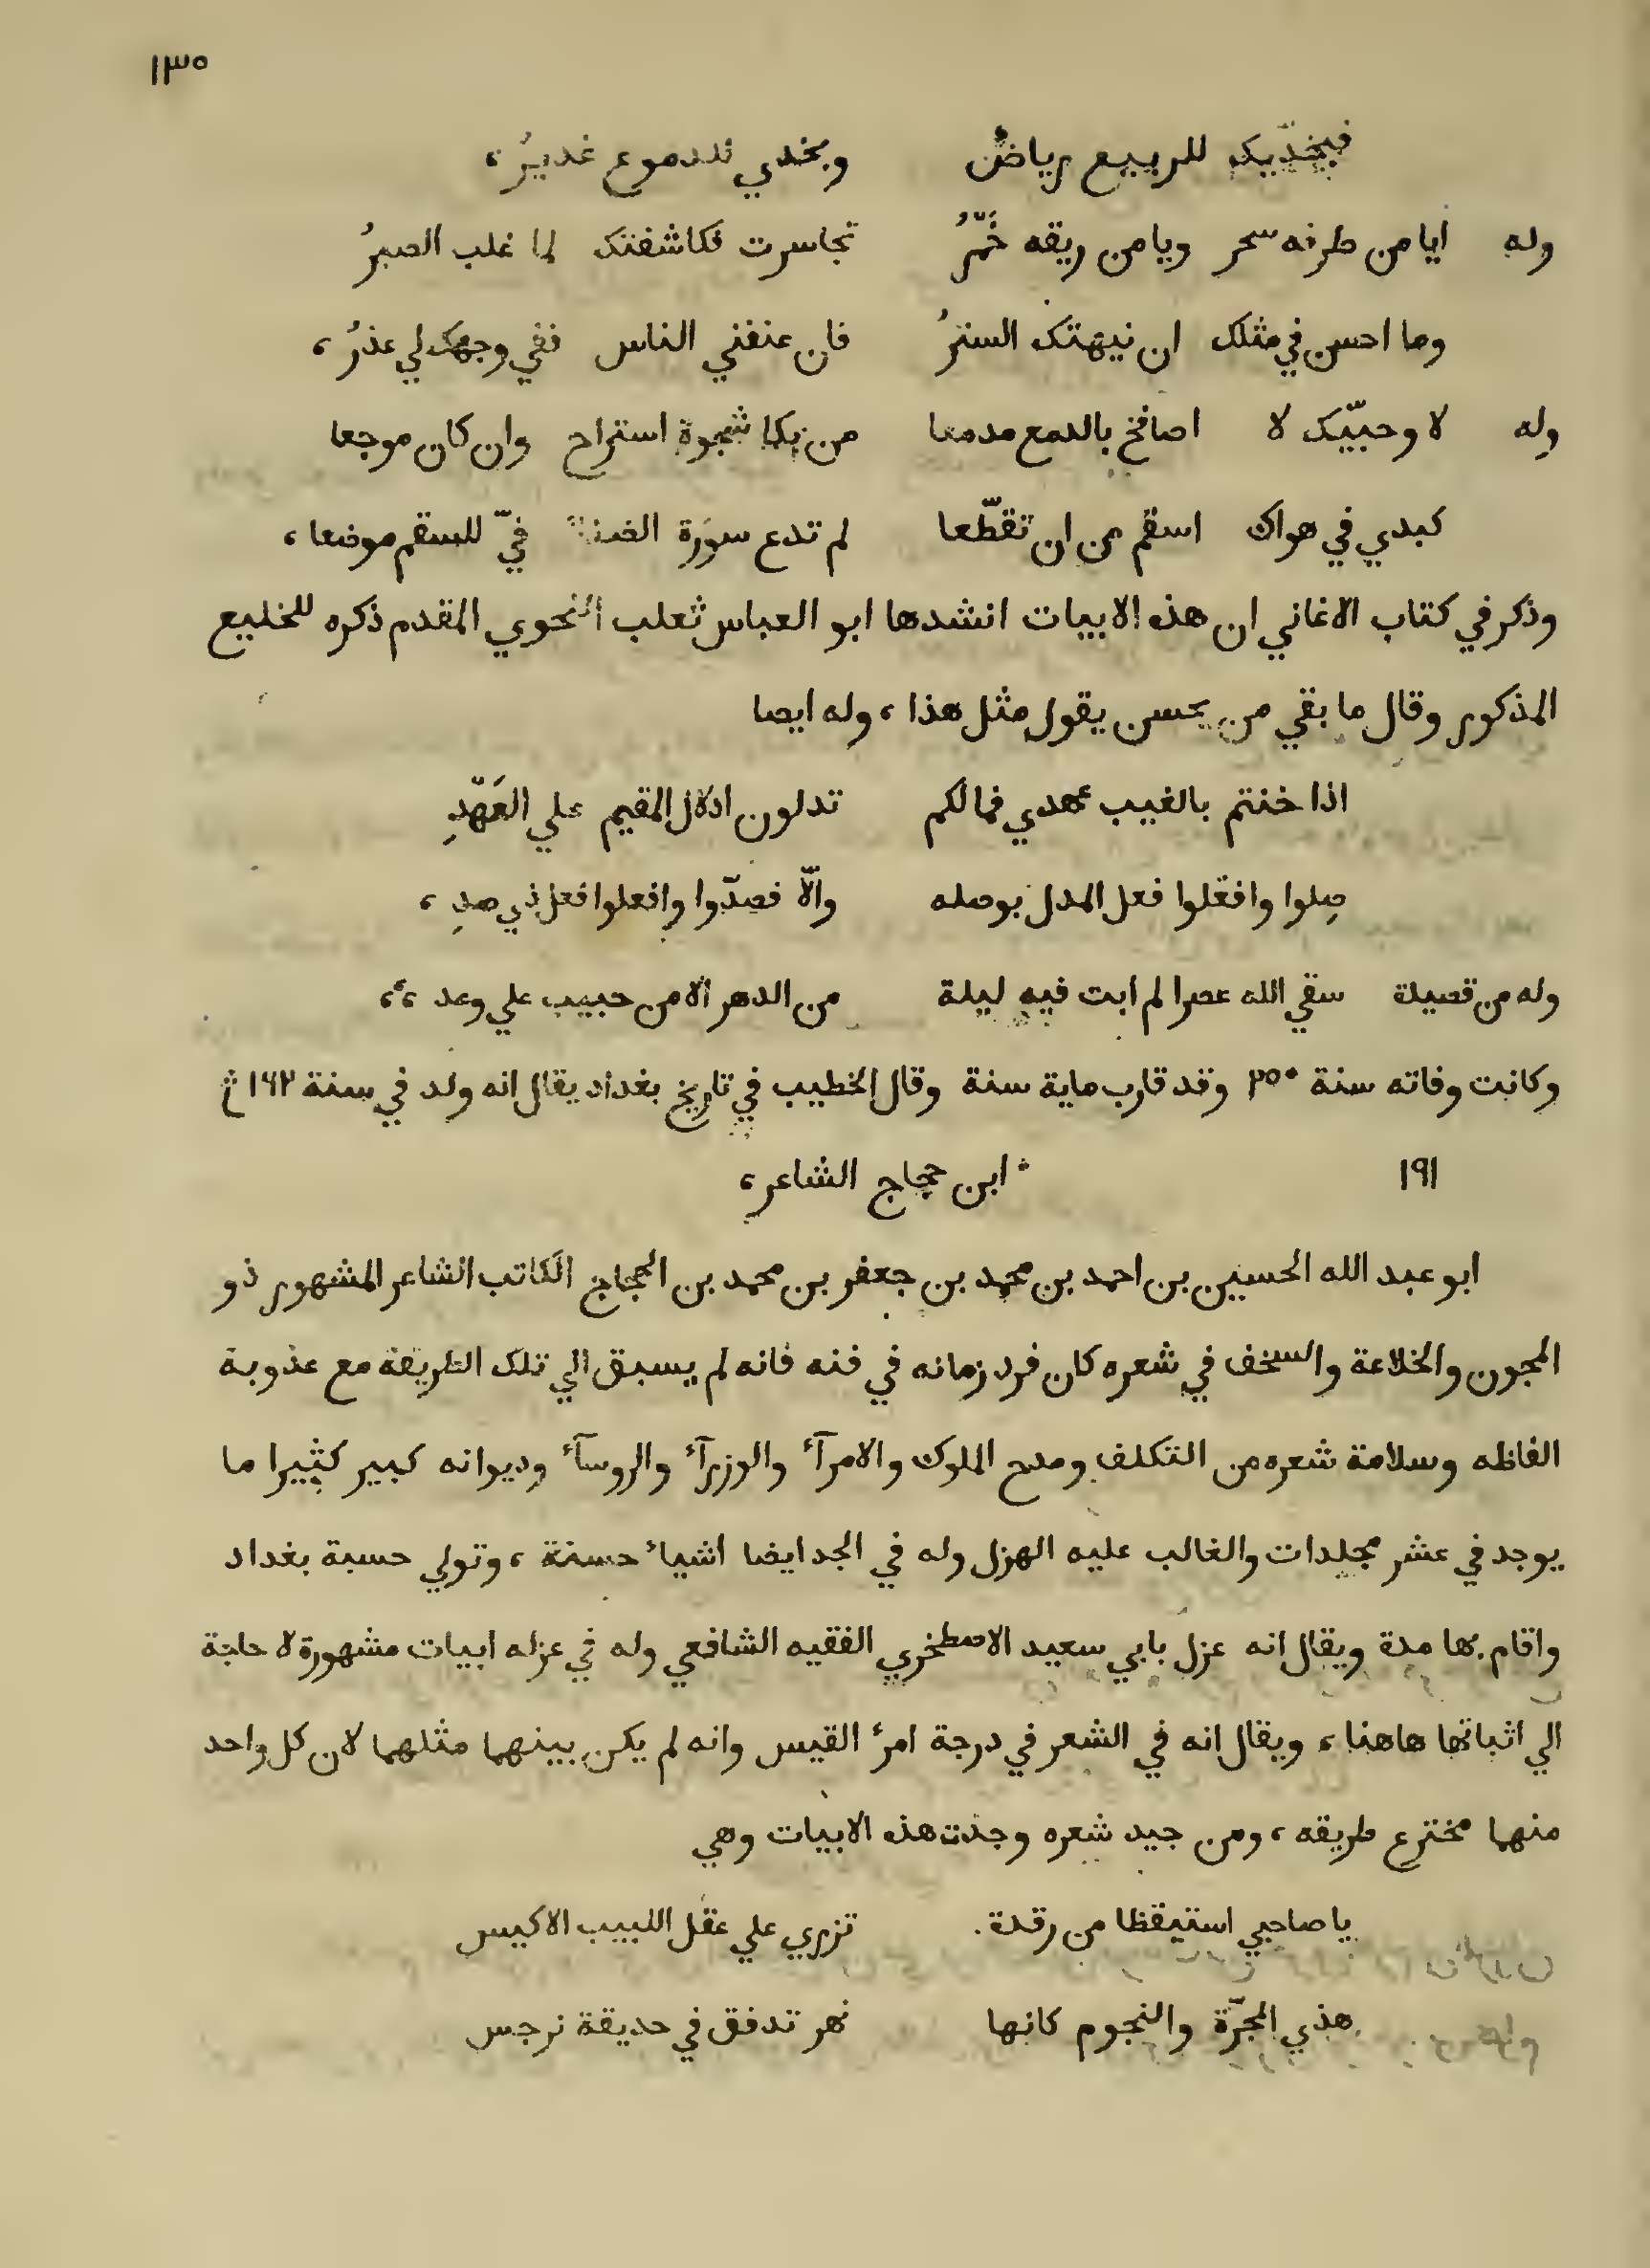 ١٣٥
فبخدّيك للربيع رياضٌ وبخدي للدموع غديرُ ،
وله ايا من طرفه سحر ويا من ريقه خَمّرُ تجاسرت فكاشفتك لما غلب الصبرُ
وما احسن في مثلك ان نيهتك الستزُ فان عنفني الناس ففي وجهك لي عذرُ ،
وله لا وحبّيك لا اصافح بالدمع مدمعا من بكا شجوة استراح وان كان موجعا
كبدي في هواك اسقم من ان تقطّعا لم تدع سورة الضنا فيّ للسقم موضعا ،
وذكر في كتاب الاغاني ان هذه الابيات انشدها ابو العباس ثعلب النحوي المقدم ذكره للخليع
المذكور وقال ما بقي من يحسن يقول مثل هذا ، وله ايصا
اذا خنتم بالغيب عهدي فمالكم تدلون ادلال المقيم علي العَهّدِ
صِلوا وافعلوا فعل المدل بوصله والّا فصدّوا وافعلوا فعل ذي صدِ ،
وله من قصيدة سقي الله عصرا لم ابت فيه ليلة من الدهر الا من حبيب علي وعد ،،
وكانت وفاته سنة ٢٥٠ وقد قارب ماية سنة وقال الخطيب في تاريخ بغداد يقال انه ولد في سنة ١٦٢
١٩١ ابن حجاج الشاعر ،
ابو عبد الله الحسين بن احمد بن محمد بن جعفر بن محمد بن الحجاج الكاتب الشاعر المشهور ذو
المجون والخلاعة والسخف في شعره كان فرد زمانه في فنه فانه لم يسبق الي تلك الطريقة مع عذوبة
الفاظه وسلامة شعره من التكلف ومدح الملوك والامرآء والوزرآء والروسآء وديوانه كبير كثيرا ما
يوجد في عشر مجلدات والغالب عليه الهزل وله في الجد ايضا اشياء حسنة ، وتولي حسبة بغداد
واقام بها مدة ويقال انه عزل بابي سعيد الاصطخري الفقيه الشافعي وله في عزله ابيات مشهورة لا حاجة
الي اثباتها هاهنا ، ويقال انه في الشعر في درجة امرء القيس وانه لم يكن بينهما مثلهما لان كل واحد
منهما مخترع طريقه ، ومن جيد شعره وجدت هذه الابيات وهي
يا صاحبي استيقظا من رقدة . تزري علي عقل اللبيب الاكيس
هذي المجرّة والنجوم كانها نهر تدفق في حديقة نرجس